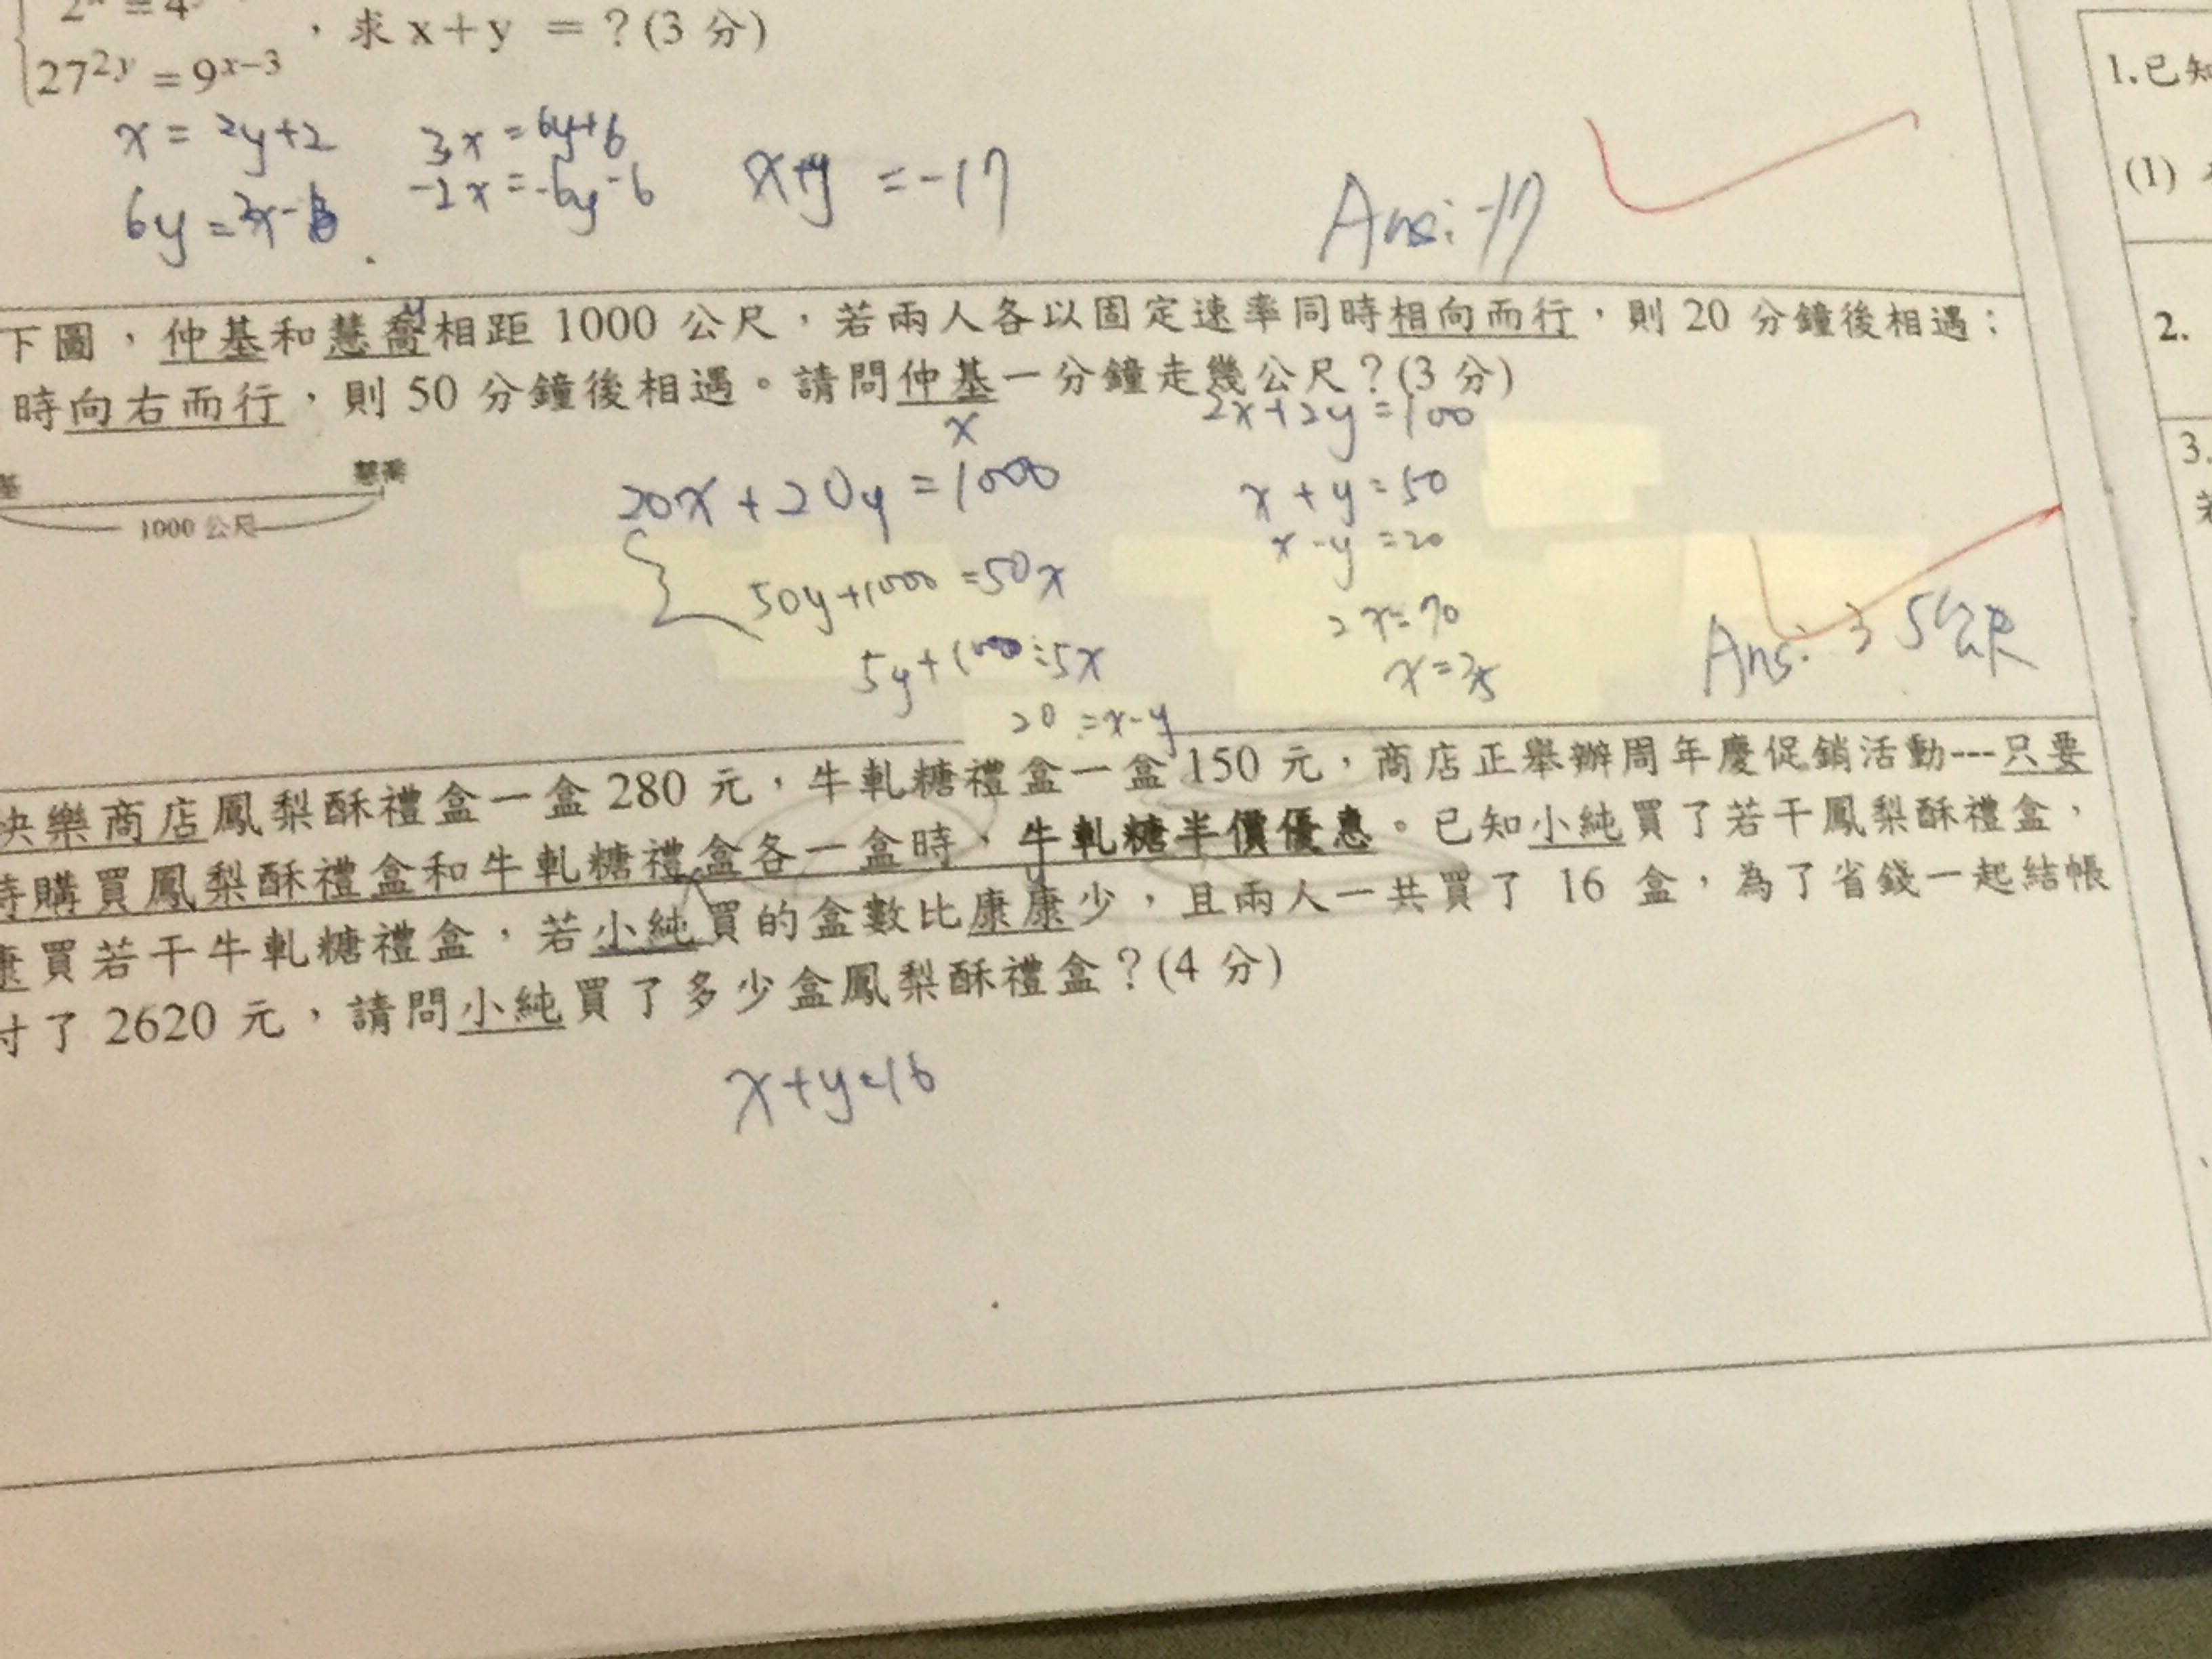 27^{2y} = 9^{x-3} ，求 x+y ＝？(3 分)
x = 2y+2
3x = 6y+6
x+y = -17
6y = 2x-6
-2x = -6y-6
Ans: -17
下圖，仲基和慧喬相距 1000 公尺，若兩人各以固定速率同時相向而行，則 20 分鐘後相遇；
y
時向右而行，則 50 分鐘後相遇。請問仲基一分鐘走幾公尺？(3 分)
x
2x+2y=100
基 慧喬
1000 公尺
20x+20y=1000
x+y=50
50y+1000=50x
x-y=20
5y+100=5x
2x=70
20=x-y
x=35
Ans: 35公尺
快樂商店鳳梨酥禮盒一盒 280 元，牛軋糖禮盒一盒 150 元，商店正舉辦周年慶促銷活動---只要
時購買鳳梨酥禮盒和牛軋糖禮盒各一盒時，牛軋糖半價優惠。已知小純買了若干鳳梨酥禮盒，
x y
康買若干牛軋糖禮盒，若小純買的盒數比康康少，且兩人一共買了 16 盒，為了省錢一起結帳
付了 2620 元，請問小純買了多少盒鳳梨酥禮盒？(4 分)
x+y=16
1.已知
(1)
2.
3.